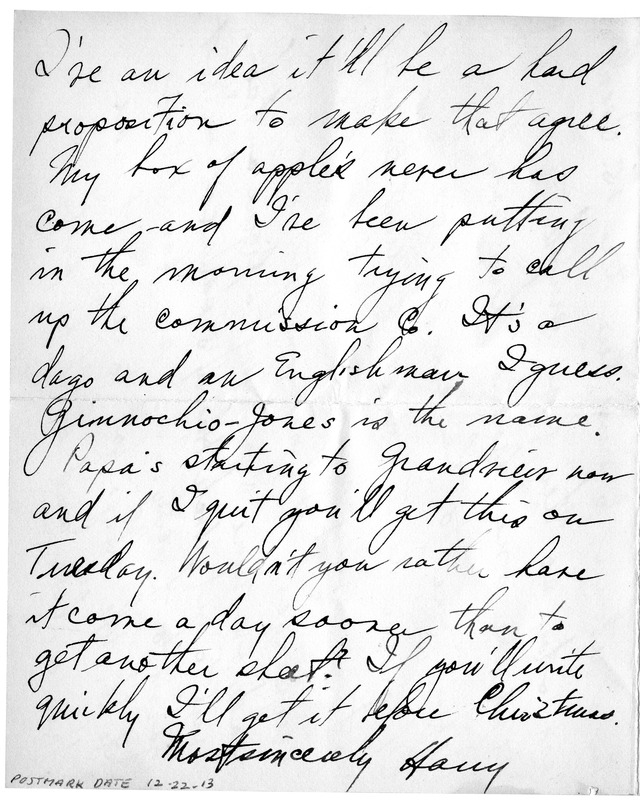 I've an idea it'll be a hard
proposition to make that agree.
My box of apples never has
come and I've been putting
in the morning trying to call
up the commission Co. It's a
dago and an Englishman I guess.
Ginnochio-Jones is the name.
Papa's starting to Grandview now
and if I quit you'll get this on
Tuesday. Wouldn't you rather have
it come a day sooner than to
get another sheet? If you'll write
quickly I'll get it before Christmas.
Most sincerely Harry
POSTMARK DATE 12-22-13